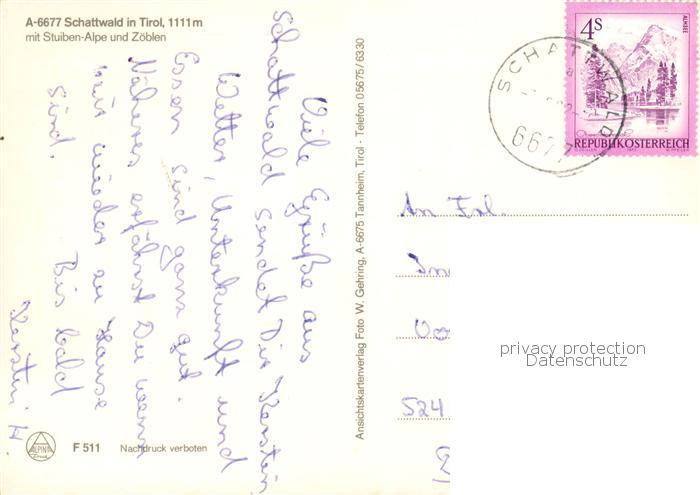 A-6677 Schattwald in Tirol, 1111 m
mit Stuiben-Alpe und Zöblen
Viele Grüße aus
Schattwald sendet Dir Kerstin.
Wetter, Unterkunft und
Essen sind ganz gut.
Näheres erfährst Du wenn
wir wieder zu Hause
sind.
Bis bald
Kerstin H.
ALPINA
Druck
F 511
Nachdruck verboten
Ansichtskartenverlag Foto W. Gehring, A-6675 Tannheim, Tirol - Telefon 05675/6330
SCHATTWALD
6677
4S
ALMSEE
REPUBLIK ÖSTERREICH
An Frl.
524
privacy protection
Datenschutz